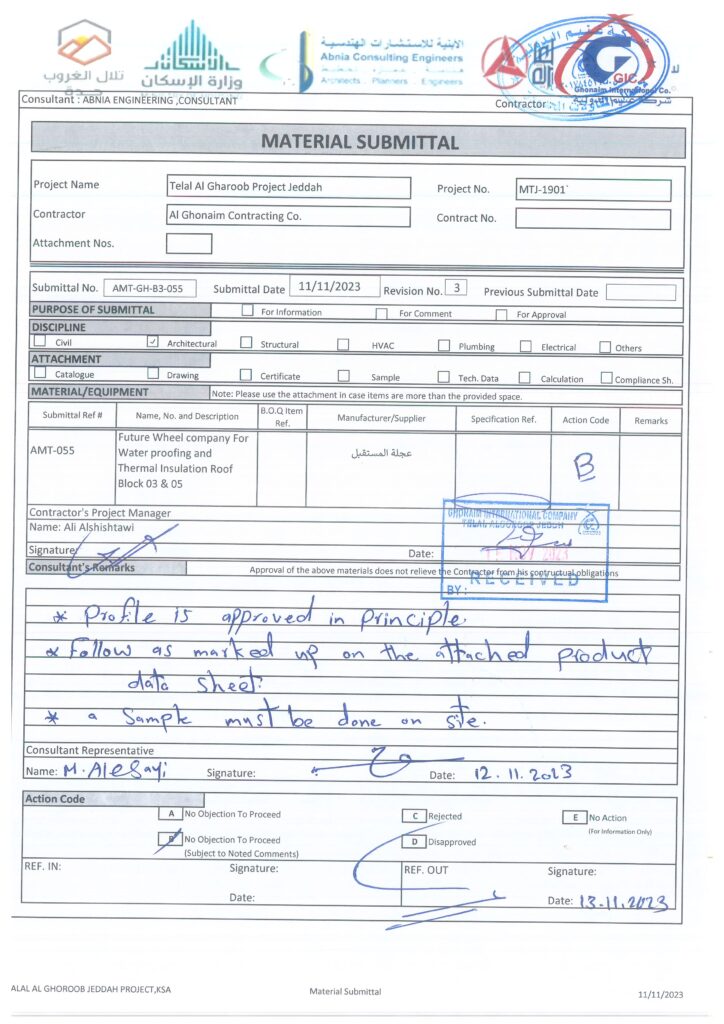 تلال الغروب
جدة
وزارة الإسكان
الابنية للاستشارات الهندسية
Abnia Consulting Engineers
Architects - Planners - Engineers
GIC
Ghonaim International Co.
Consultant : ABNIA ENGINEERING ,CONSULTANT
Contractor
MATERIAL SUBMITTAL
Project Name Telal Al Gharoob Project Jeddah Project No. MTJ-1901`
Contractor Al Ghonaim Contracting Co. Contract No.
Attachment Nos.
Submittal No. AMT-GH-B3-055 Submittal Date 11/11/2023 Revision No. 3 Previous Submittal Date
PURPOSE OF SUBMITTAL For Information For Comment For Approval
DISCIPLINE
Civil ✓ Architectural Structural HVAC Plumbing Electrical Others
ATTACHMENT
Catalogue Drawing Certificate Sample Tech. Data Calculation Compliance Sh.
MATERIAL/EQUIPMENT Note: Please use the attachment in case items are more than the provided space.
Submittal Ref # Name, No. and Description B.O.Q Item Ref. Manufacturer/Supplier Specification Ref. Action Code Remarks
AMT-055 Future Wheel company For Water proofing and Thermal Insulation Roof Block 03 & 05 عجلة المستقبل B
Contractor's Project Manager
Name: Ali Alshishtawi
Signature: Date:
GHONAIM INTERNATIONAL COMPANY
2023
RECEIVED
BY:
Consultant's Remarks Approval of the above materials does not relieve the Contractor from his contructual obligations
* Profile is approved in principle.
* Follow as marked up on the attached product
data sheet.
* a Sample must be done on site.
Consultant Representative
Name: M. AleSayi Signature: Date: 12.11.2023
Action Code
A No Objection To Proceed C Rejected E No Action
(For Information Only)
B No Objection To Proceed D Disapproved
(Subject to Noted Comments)
REF. IN: Signature: REF. OUT Signature:
Date: Date: 13.11.2023
ALAL AL GHOROOB JEDDAH PROJECT,KSA Material Submittal 11/11/2023